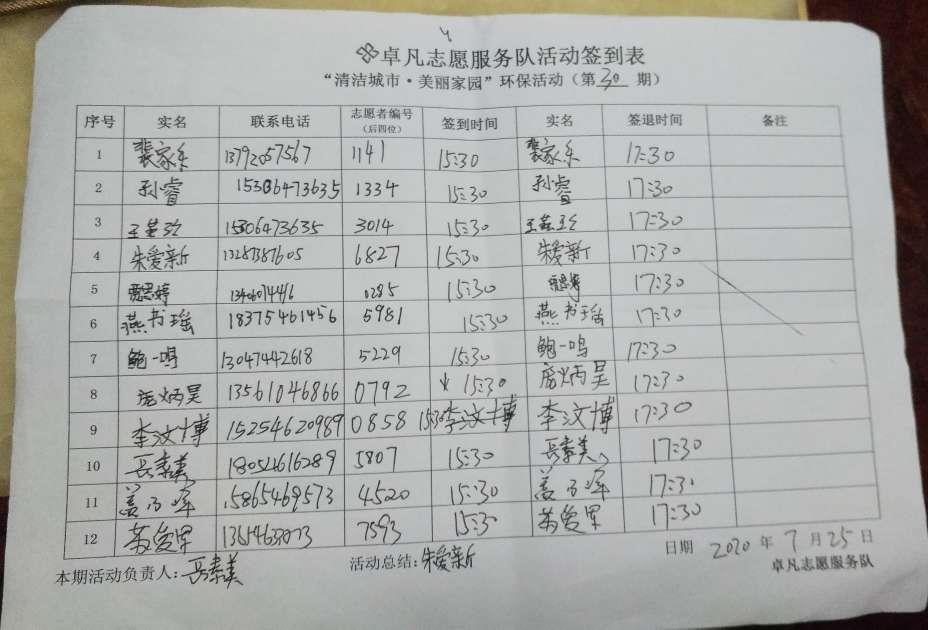 卓凡志愿服务队活动签到表
“清洁城市·美丽家园”环保活动(第 30 期)
序号 实名 联系电话 志愿者编号(后四位) 签到时间 实名 签退时间 备注
1 裴家乐 13792057567 1141 15:30 裴家乐 17:30
2 孙睿 15306473635 1334 15:30 孙睿 17:30
3 15306473635 3014 15:30 17:30
4 朱爱新 13287387605 6827 15:30 朱爱新 17:30
5 0285 15:30 17:30
6 燕书瑶 18375461456 5981 15:30 燕书瑶 17:30
7 鲍一鸣 13047442618 5229 15:30 鲍一鸣 17:30
8 庞炳昊 13561046866 0792 15:30 庞炳昊 17:30
9 李汶博 15254620989 0858 15:30 李汶博 17:30
10 18054616289 5807 15:30 17:30
11 15865469573 4520 15:30 17:30
12 7593 15:30 17:30
日期 2020 年 7 月 25 日
本期活动负责人: 活动总结:朱爱新 卓凡志愿服务队